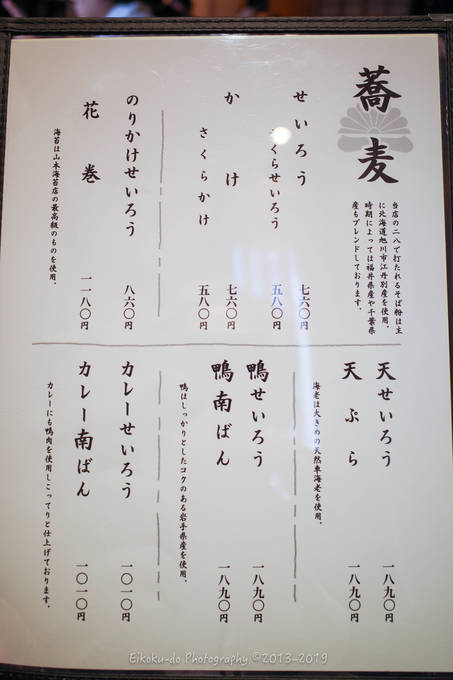 蕎麦
当店の二八で打たれるそば粉は主
に北海道旭川市江丹別産を使用。
時期によっては福井県産や千葉県
産もブレンドしております。
せいろう 七六〇円
さくらせいろう 五八〇円
かけ 七六〇円
さくらかけ 五八〇円
のりかけせいろう 八六〇円
花巻 一一八〇円
海苔は山本海苔店の最高級のものを使用。
天せいろう 一八九〇円
天ぷら 一八九〇円
海老は大きめの天然車海老を使用。
鴨せいろう 一八九〇円
鴨南ばん 一八九〇円
鴨はしっかりとしたコクのある岩手県産を使用。
カレーせいろう 一〇一〇円
カレー南ばん 一〇一〇円
カレーにも鴨肉を使用しこってりと仕上げております。
Eikoku-do Photography ©2013-2019